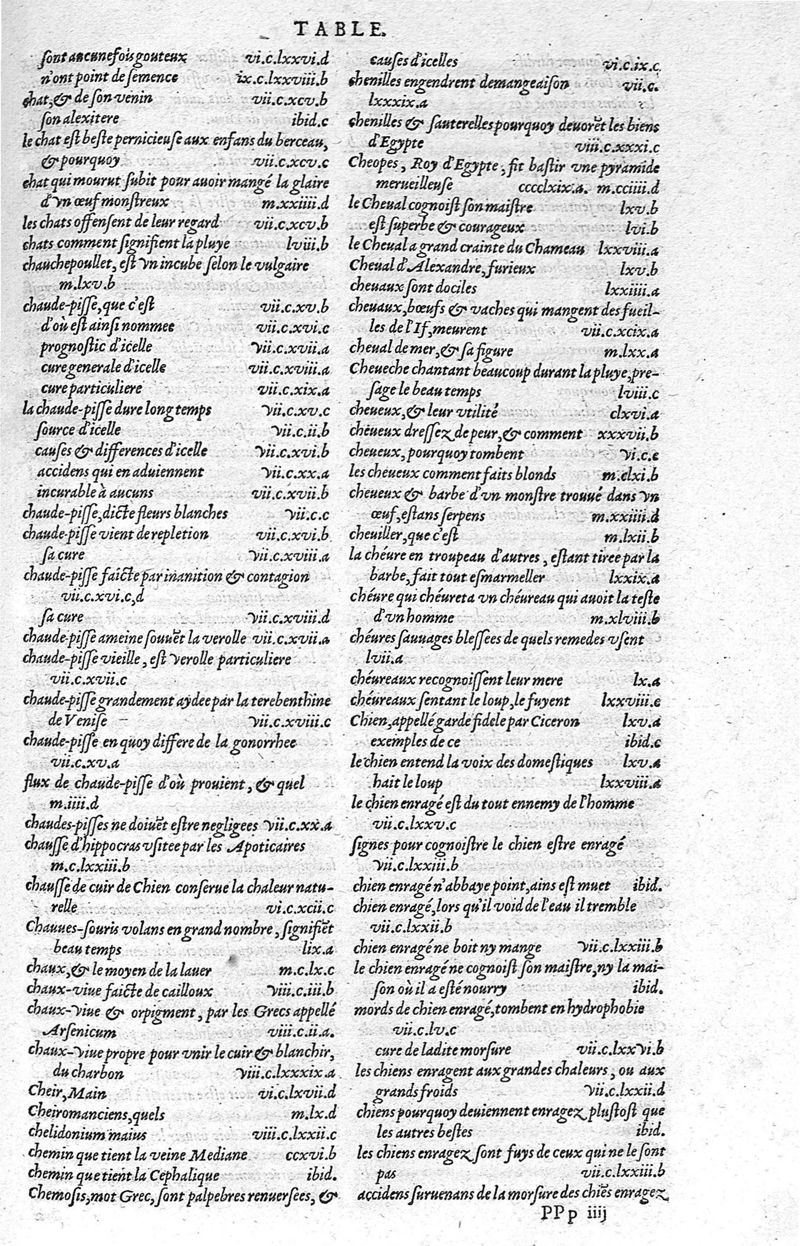 TABLE.
sont aucunefois gouteux vi.c.lxxvi.d
n'ont point de semence ix.c.lxxviii.b
chat, & de son venin vii.c.xcv.b
son alexitere ibid.c
le chat est beste pernicieuse aux enfans du berceau,
& pourquoy vii.c.xcv.c
chat qui mourut subit pour auoir mangé la glaire
d'vn œuf monstreux m.xxiiii.d
les chats offensent de leur regard vii.c.xcv.b
chats comment signifient la pluye lviii.b
chauchepoullet, est vn incube selon le vulgaire
m.lxv.b
chaude-pisse, que c'est vii.c.xv.b
d'où est ainsi nommee vii.c.xvi.c
prognostic d'icelle vii.c.xvii.a
cure generale d'icelle vii.c.xviii.a
cure particuliere vii.c.xix.a
la chaude-pisse dure long temps vii.c.xv.c
source d'icelle vii.c.ii.b
causes & differences d'icelle vii.c.xvi.b
accidens qui en aduiennent vii.c.xx.a
incurable à aucuns vii.c.xvii.b
chaude-pisse, dicte fleurs blanches vii.c.c
chaude-pisse vient de repletion vii.c.xvi.b
sa cure vii.c.xviii.a
chaude-pisse faicte par inanition & contagion
vii.c.xvi.c,d
sa cure vii.c.xviii.d
chaude-pisse ameine souuēt la verolle vii.c.xvii.a
chaude-pisse vieille, est verolle particuliere
vii.c.xvii.c
chaude-pisse grandement aydee par la terebenthine
de Venise vii.c.xviii.c
chaude-pisse en quoy differe de la gonorrhee
vii.c.xv.a
flux de chaude-pisse d'où prouient, & quel
m.iiii.d
chaudes-pisses ne doiuēt estre negligees vii.c.xx.a
chausse d'hippocras vsitee par les Apoticaires
m.c.lxxiii.b
chausse de cuir de Chien conserue la chaleur natu-
relle vi.c.xcii.c
Chauues-souris volans en grand nombre, signifiēt
beau temps lix.a
chaux, & le moyen de la lauer m.c.lx.c
chaux-viue faicte de cailloux viii.c.iii.b
chaux-viue & orpigment, par les Grecs appellé
Arsenicum viii.c.ii.a.
chaux-viue propre pour vnir le cuir & blanchir,
du charbon viii.c.lxxxix.a
Cheir, Main vi.c.lxvii.d
Cheiromanciens, quels m.lx.d
chelidonium maius viii.c.lxxii.c
chemin que tient la veine Mediane ccxvi.b
chemin que tient la Cephalique ibid.
Chemosis, mot Grec, sont palpebres renuersées, &
causes d'icelles vi.c.ix.c.
chenilles engendrent demangeaison vii.c.
lxxxix.a
chenilles & sauterelles pourquoy deuorēt les biens
d'Egypte viii.c.xxxi.c
Cheopes, Roy d'Egypte, fit bastir vne pyramide
merueilleuse cccclxix.a. m.cciiii.d
le Cheual cognoist son maistre lxv.b
est superbe & courageux lvi.b
le Cheual a grand crainte du Chameau lxxviii.a
Cheual d'Alexandre, furieux lxv.b
cheuaux sont dociles lxxiiii.a
cheuaux, bœufs & vaches qui mangent des fueil-
les de l'If, meurent vii.c.xcix.a
cheual de mer, & sa figure m.lxx.a
Cheueche chantant beaucoup durant la pluye, pre-
sage le beau temps lviii.c
cheueux, & leur vtilité clxvi.a
cheueux dressez de peur, & comment xxxvii.b
cheueux, pourquoy tombent vi.c.c
les cheueux comment faits blonds m.clxi.b
cheueux & barbe d'vn monstre trouué dans vn
œuf, estans serpens m.xxiiii.d
cheuiller, que c'est m.lxii.b
la chéure en troupeau d'autres, estant tiree par la
barbe, fait tout esmarmeller lxxix.a
chéure qui chéureta vn chéureau qui auoit la teste
d'vn homme m.xlviii.b
chéures sauuages blessees de quels remedes vsent
lvii.a
chéureaux recognoissent leur mere lx.a
chéureaux sentant le loup, le fuyent lxxviii.c
Chien, appellé garde fidele par Ciceron lxv.a
exemples de ce ibid.c
le chien entend la voix des domestiques lxv.a
hait le loup lxxviii.a
le chien enragé est du tout ennemy de l'homme
vii.c.lxxv.c
signes pour cognoistre le chien estre enragé
vii.c.lxxiii.b
chien enragé n'abbaye point, ains est muet ibid.
chien enragé, lors qu'il void de l'eau il tremble
vii.c.lxxii.b
chien enragé ne boit ny mange vii.c.lxxiii.b
le chien enragé ne cognoist son maistre, ny la mai-
son où il a esté nourry ibid.
mords de chien enragé, tombent en hydrophobie
vii.c.lv.c
cure de ladite morsure vii.c.lxxvi.b
les chiens enragent aux grandes chaleurs, ou aux
grands froids vii.c.lxxii.d
chiens pourquoy deuiennent enragez plustost que
les autres bestes ibid.
les chiens enragez sont fuys de ceux qui ne le sont
pas vii.c.lxxiii.b
accidens suruenans de la morsure des chiēs enragez
PPp iiij